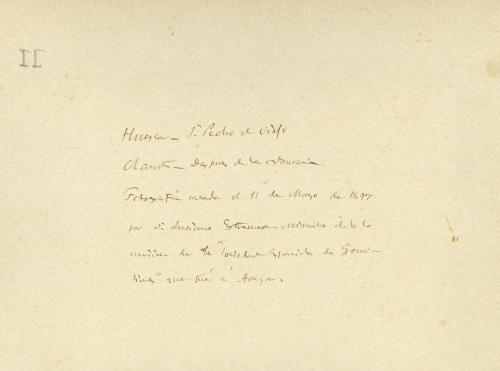 II
Huesca - Sn Pedro el Viejo
Claustro - Despues de la restauracion
Fotografía sacada el 11 de Mayo de 1897
por Dn Luciano Estremera Miembro de la
mision de la "Sociedad Española de Excur-
siones" que fué á Aragon.